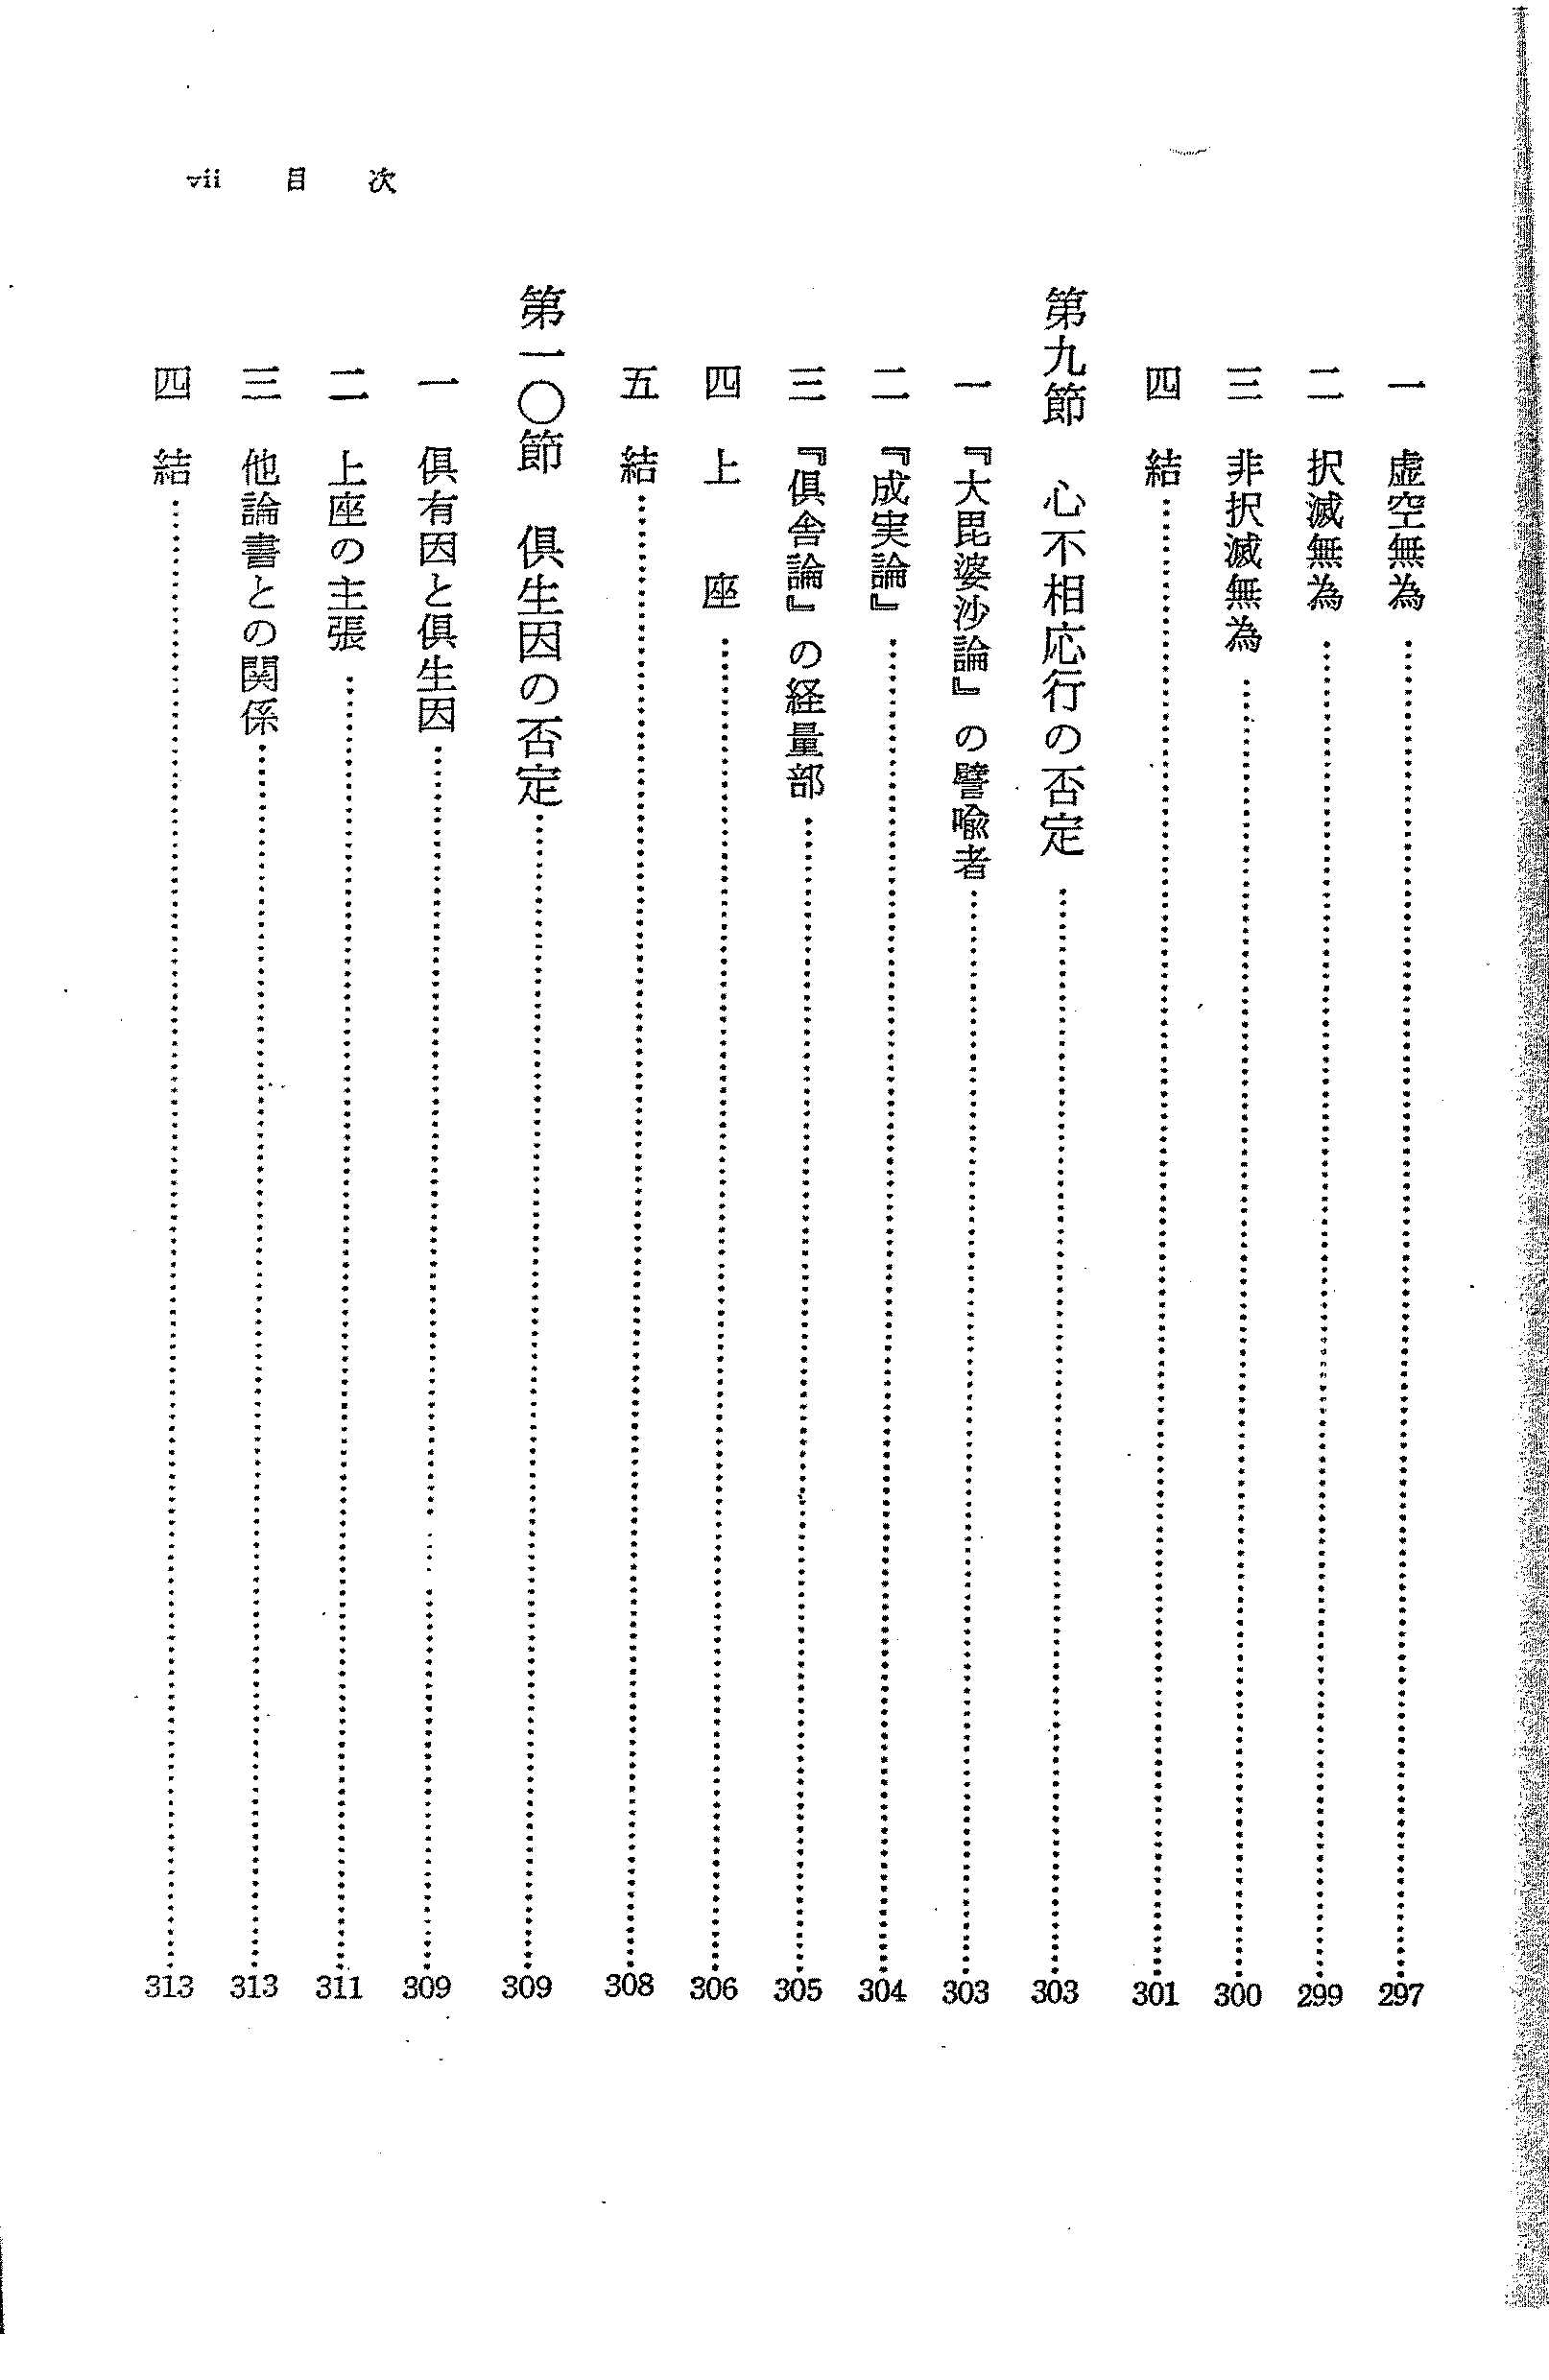 vii 目 次
一 虚空無為 297
二 択滅無為 299
三 非択滅無為 300
四 結 301
第九節 心不相応行の否定 303
一 『大毘婆沙論』の譬喩者 303
二 『成実論』 304
三 『倶舎論』の経量部 305
四 上 座 306
五 結 308
第一〇節 倶生因の否定 309
一 倶有因と倶生因 309
二 上座の主張 311
三 他論書との関係 313
四 結 313